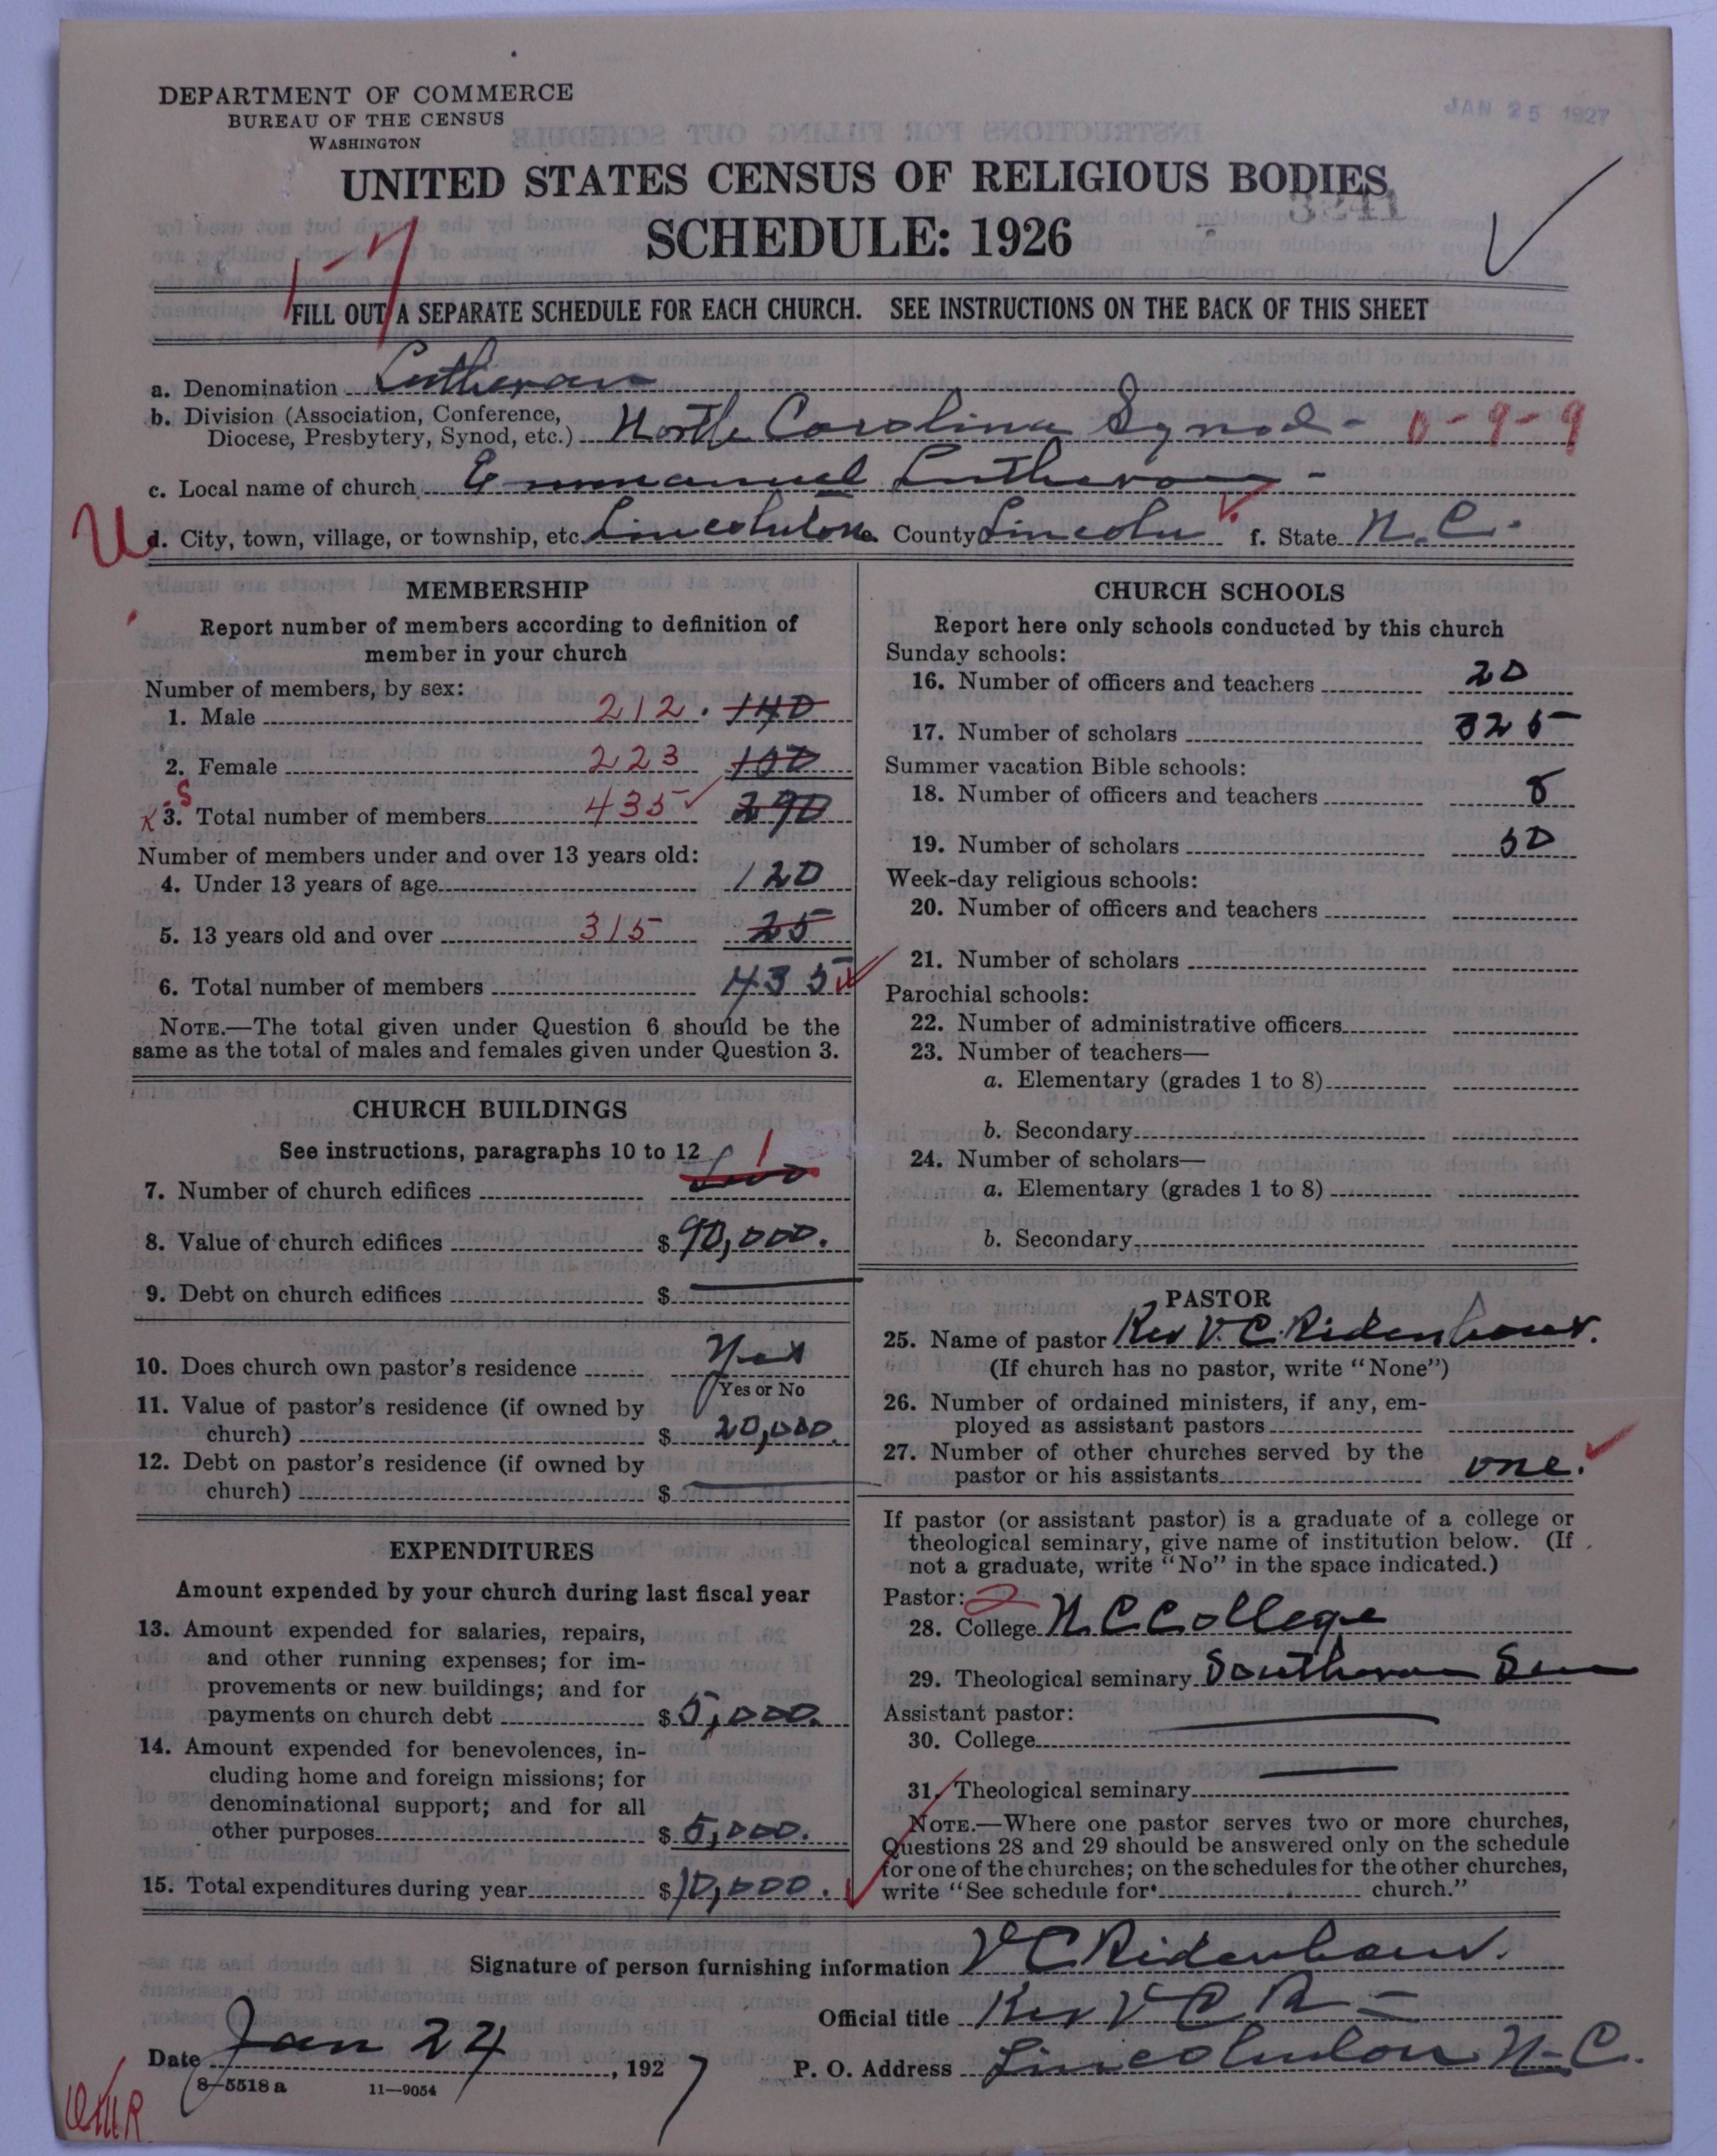 DEPARTMENT OF COMMERCE
BUREAU OF THE CENSUS
WASHINGTON
JAN 25 1927
UNITED STATES CENSUS OF RELIGIOUS BODIES
3241
SCHEDULE: 1926
1-7
FILL OUT A SEPARATE SCHEDULE FOR EACH CHURCH. SEE INSTRUCTIONS ON THE BACK OF THIS SHEET
a. Denomination Lutheran
b. Division (Association, Conference,
Diocese, Presbytery, Synod, etc.) North Carolina Synod - 0-9-9
c. Local name of church Emmanuel Lutheran -
U
d. City, town, village, or township, etc. Lincolnton e. County Lincoln f. State N.C.
MEMBERSHIP
Report number of members according to definition of
member in your church
Number of members, by sex:
1. Male 212. 140
2. Female 223 150
S
K 3. Total number of members 435 290
Number of members under and over 13 years old:
4. Under 13 years of age 120
5. 13 years old and over 315 25
6. Total number of members 435
NOTE.—The total given under Question 6 should be the
same as the total of males and females given under Question 3.
CHURCH BUILDINGS
See instructions, paragraphs 10 to 12
7. Number of church edifices 1
8. Value of church edifices $90,000.
9. Debt on church edifices $
10. Does church own pastor's residence Yes
Yes or No
11. Value of pastor's residence (if owned by
church) $ 20,000.
12. Debt on pastor's residence (if owned by
church) $
EXPENDITURES
Amount expended by your church during last fiscal year
13. Amount expended for salaries, repairs,
and other running expenses; for im-
provements or new buildings; and for
payments on church debt $5,000.
14. Amount expended for benevolences, in-
cluding home and foreign missions; for
denominational support; and for all
other purposes $5,000.
15. Total expenditures during year $10,000.
CHURCH SCHOOLS
Report here only schools conducted by this church
Sunday schools:
16. Number of officers and teachers 20
17. Number of scholars 325
Summer vacation Bible schools:
18. Number of officers and teachers 8
19. Number of scholars 50
Week-day religious schools:
20. Number of officers and teachers
21. Number of scholars
Parochial schools:
22. Number of administrative officers
23. Number of teachers—
a. Elementary (grades 1 to 8)
b. Secondary
24. Number of scholars—
a. Elementary (grades 1 to 8)
b. Secondary
PASTOR
25. Name of pastor Rev V. C. Ridenhour.
(If church has no pastor, write "None")
26. Number of ordained ministers, if any, em-
ployed as assistant pastors
27. Number of other churches served by the
pastor or his assistants one.
If pastor (or assistant pastor) is a graduate of a college or
theological seminary, give name of institution below. (If
not a graduate, write "No" in the space indicated.)
Pastor: 2
28. College N.C College
29. Theological seminary Southern Sem
Assistant pastor:
30. College
31. Theological seminary
NOTE.—Where one pastor serves two or more churches,
Questions 28 and 29 should be answered only on the schedule
for one of the churches; on the schedules for the other churches,
write "See schedule for church."
Signature of person furnishing information V C Ridenhour.
Official title Rev V C R -
Date Jan 24, 1927 P. O. Address Lincolnton N-C.
8-5518 a 11-9054